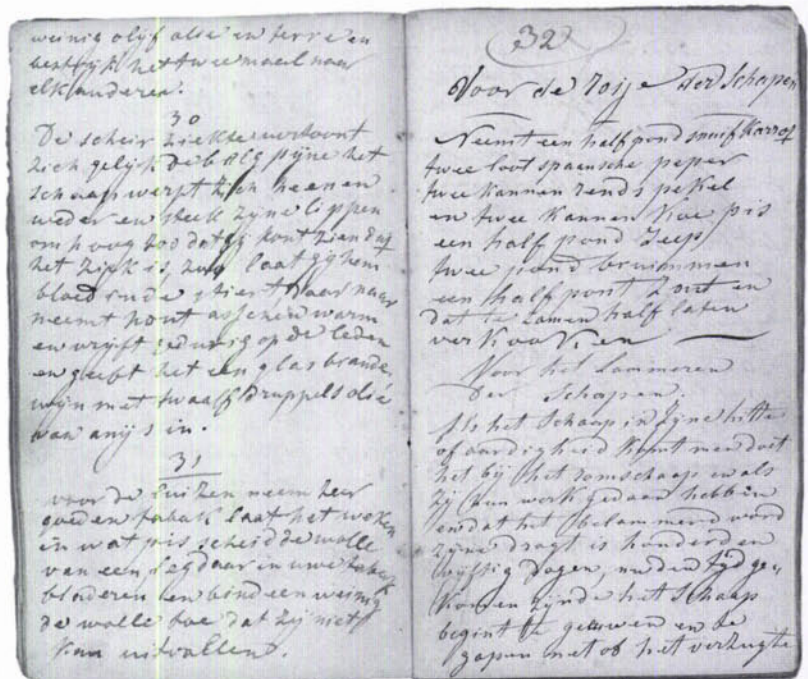 weinig olijf olie en terre en
bestrijk het twee maal naar
elkanderen.
30
De scheir ziekte vertoont
zich gelijk de bolg pijne het
schaap werpt zich heen en
weder en steek zijne lippen
om hoog zoo dat gij kont zien dat
het ziek is, laat gij hem
bloed aan de stiert daar naar
neemt hout asschen warm
en wrijft gedurig op de leden
en geeft het een glas brande
wijn met twaalf druppels olie
van anijs in.
31
voor de luizen neem zeer
goeden tabak laat het weken
in wat pis scheid de wolle
van een legd daar in uwe tabak
bladeren en bind een weinig
de wolle toe dat zij niet
kan uitvallen.
32
Voor de rosje der Schapen
Neemt een half pond snuif karrot
twee loot spaensche peper
twee kannen rends pekel
en twee kannen koe pis
een half pond Zeep
twee pond bremmen
een half pont Zout en
dat te samen half laten
verkooken
Voor het lammeren
Der Schapen
Als het Schaap in zijne hitte
of aardigheid komt men doet
het bij het romschaap en als
zij hun werk gedaan hebben
en dat het belammerd word
zijne dragt is honderd en
vijftig dagen, nu den tijd ge„
komen zijnde het Schaap
begint te geeuwen en te
gapen net of het verzugte